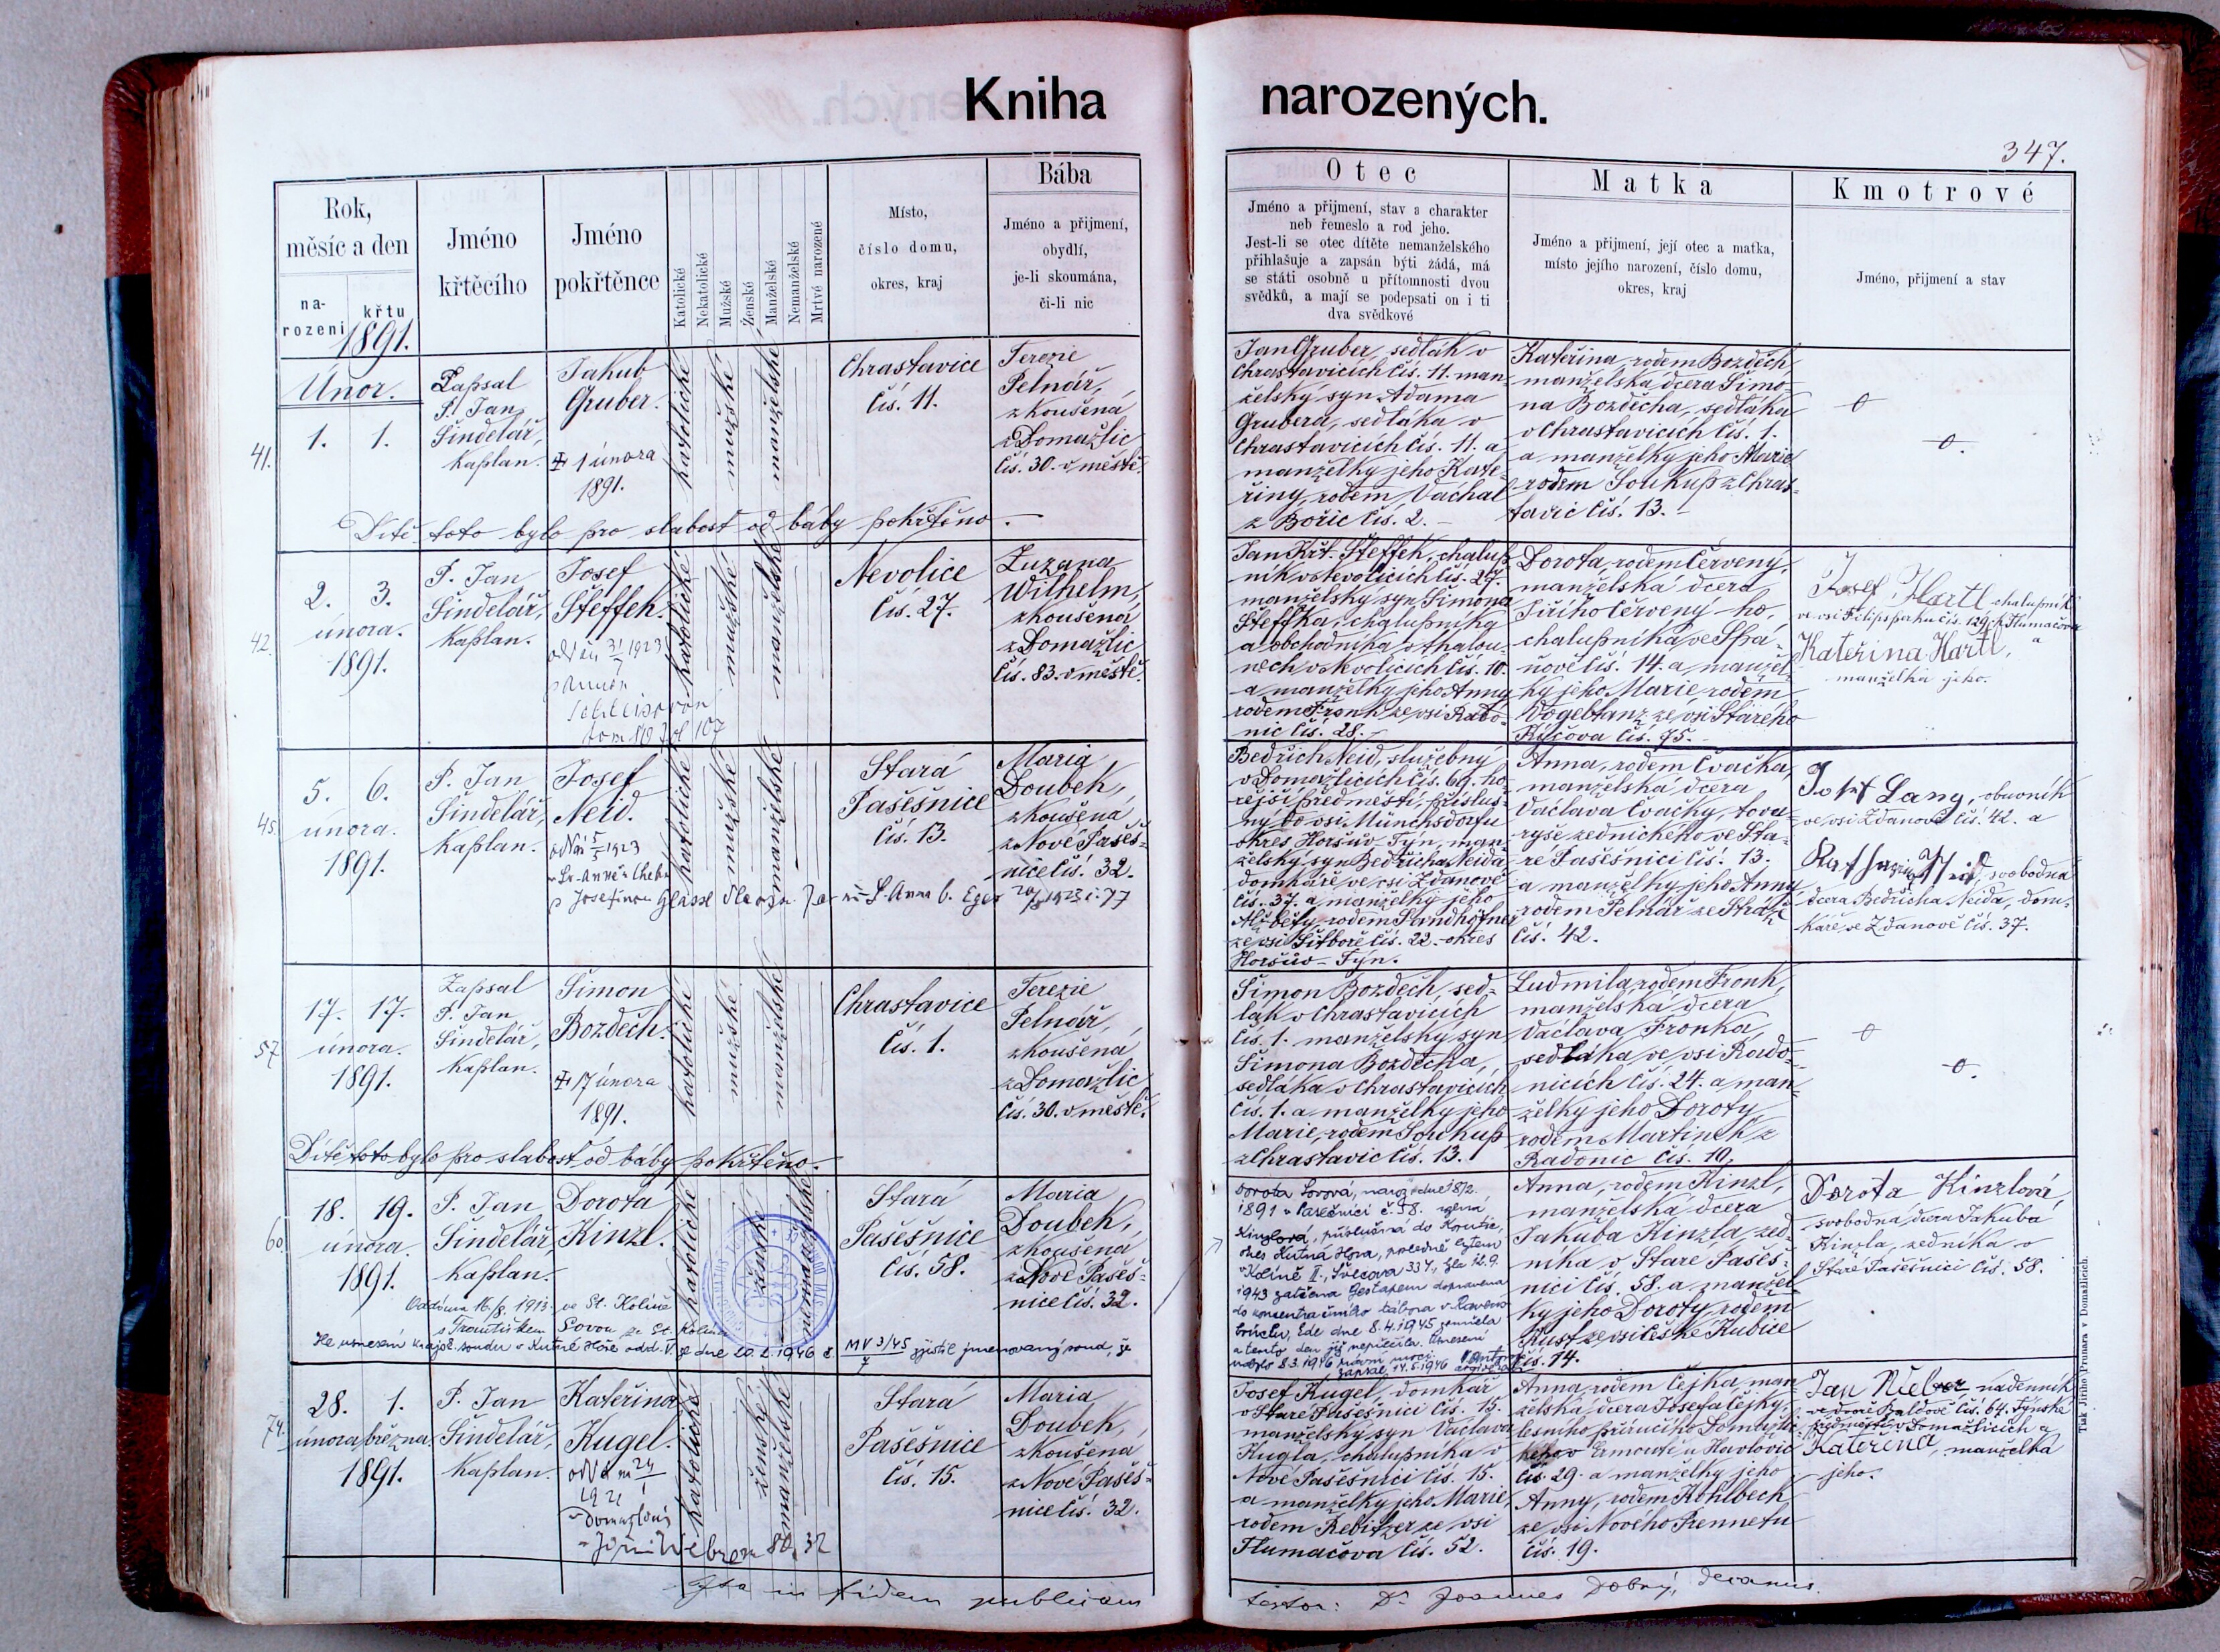 Kniha narozených.
347.
Rok,
měsíc a den
na-
rozeni
křtu
1891.
Jméno
křtěcího
Jméno
pokřtěnce
Katolické
Nekatolické
Mužské
Ženské
Manželské
Nemanželské
Mrtvé narozené
Místo,
číslo domu,
okres, kraj
Bába
Jméno a přijmení,
obydlí,
je-li skoumána,
či-li nic
Otec
Jméno a přijmení, stav a charakter
neb řemeslo a rod jeho.
Jest-li se otec dítěte nemanželského
přihlašuje a zapsán býti žádá, má
se státi osobně u přítomnosti dvou
svědků, a mají se podepsati on i ti
dva svědkové
Matka
Jméno a přijmení, její otec a matka,
místo jejího narození, číslo domu,
okres, kraj
Kmotrové
Jméno, přijmení a stav
Únor.
41.
1. 1.
Zapsal
P. Jan
Šindelář,
kaplan.
Jakub
Gruber.
1 února
1891.
katolické
mužské
manželské
Chrastavice
čís. 11.
Terezie
Pelnář,
zkoušená
z Domažlic
čís. 30. v městě.
Jan Gruber, sedlák v
Chrastavicích čís. 11. man-
želský syn Adama
Grubera, sedláka v
Chrastavicích čís. 11. a
manželky jeho Kate-
řiny, rodem Váchal
z Bořic čís. 2.
Kateřina, rodem Bozděch,
manželská dcera Šimo-
na Bozděcha, sedláka
v Chrastavicích čís. 1.
a manželky jeho Marie
rodem Soukup z Chras-
tavic čís. 13.
Dítě toto bylo pro slabost od báby pokřtěno.
42.
2. 3.
února.
1891.
P. Jan
Šindelář,
kaplan.
Josef
Steffek.
31/7 1923
107
katolické
mužské
manželské
Nevolice
čís. 27.
Zuzana
Wilhelm,
zkoušená
z Domažlic
čís. 83. v městě.
Jan Křt. Steffek, chalup-
ník v Nevolicích čís. 27.
manželský syn Šimona
Steffka, chalupníka
a obchodníka
v Nevolicích čís. 10.
a manželky jeho Anny
rodem Fronk ze vsi Rado-
nic čís. 28.
Dorota, rodem Červený,
manželská dcera
Jiřího Červený-ho,
chalupníka ve Spá-
ňově čís. 14. a manžel-
ky jeho Marie, rodem
Vogeltanz ze vsi Starého
Klíčova čís. 75.
Josef Hartl, chalupník
ve vsi Filipsperku čís. 129. k Tlumačovu
a
Kateřina Hartl,
manželka jeho.
45.
5. 6.
února.
1891.
P. Jan
Šindelář,
kaplan.
Josef
Neid.
5/5 1923
katolické
mužské
manželské
Stará
Pasešnice
čís. 13.
Maria
Doubek,
zkoušená
z Nové Paseš-
nice čís. 32.
Bedřich Neid, služebný
v Domažlicích čís. 69. ho-
rejší předměstí, přísluš-
ný do vsi Münchsdorfu
okres Horšův-Týn, man-
želský syn Bedřicha Neida
domkáře ve vsi Ždanově
čís. 37. a manželky jeho
Alžběty, rodem Sandhöfner
ze vsi Šitboře čís. 22. okres
Horšův-Týn.
Anna, rodem Cvačka,
manželská dcera
Václava Cvačky, tova-
ryše zednického ve Sta-
ré Pasešnici čís. 13.
a manželky jeho Anny
rodem Pelnář ze Stráže
čís. 42.
Josef Lang, obuvník
ve vsi Ždanově čís. 42. a
Katharina Neid, svobodná
dcera Bedřicha Neida, dom-
káře ve Ždanově čís. 37.
57.
17. 17.
února.
1891.
Zapsal
P. Jan
Šindelář,
kaplan.
Šimon
Bozděch.
17 února
1891.
katolické
mužské
manželské
Chrastavice
čís. 1.
Terezie
Pelnář,
zkoušená
z Domažlic
čís. 30. v městě.
Šimon Bozděch, sed-
lák v Chrastavicích
čís. 1. manželský syn
Šimona Bozděcha,
sedláka v Chrastavicích
čís. 1. a manželky jeho
Marie, rodem Soukup
z Chrastavic čís. 13.
Ludmila, rodem Fronk,
manželská dcera
Václava Fronka,
sedláka ve vsi Rado-
nicích čís. 24. a man-
želky jeho Doroty,
rodem Martinek z
Radonic čís. 19.
Dítě toto bylo pro slabost od báby pokřtěno.
60.
18. 19.
února.
1891.
P. Jan
Šindelář,
kaplan.
Dorota
Kinzl.
katolické
ženské
nemanželské
Stará
Pasešnice
čís. 58.
Maria
Doubek,
zkoušená
z Nové Paseš-
nice čís. 32.
Oddána 16./8. 1913. ve St. Kolíně
s Františkem Sovou ze St. Kolína
Dle usnesení krajsk. soudu v Kutné Hoře odd. V. ze dne 20.2.1946 č. MV 3/45/7 zjistil jmenovaný soud, že
Dorota Sovová, naroz. dne 18/2.
1891 v Pasečnici č. 58. rozená
Kinzlová, příslušná do
okres Kutná Hora, posledně bytem
v Kolíně II., Švecova 337, byla 12.9.
1943 zatčena Gestapem dopravena
do koncentračního tábora v Ravens-
brücku, kde dne 8.4.1945 zemřela
a tento den již nepřežila. Usnesení
nabylo 8.3.1946 právní moci.
Zapsal 14.5.1946
Anna, rodem Kinzl,
manželská dcera
Jakuba Kinzla, zed-
níka v Staré Paseš-
nici čís. 58. a manžel-
ky jeho Doroty, rodem
ze vsi České Kubice
čís. 14.
Dorota Kinzlová,
svobodná dcera Jakuba
Kinzla, zedníka v
Staré Pasešnici čís. 58.
74.
28. 1.
února března.
1891.
P. Jan
Šindelář,
kaplan.
Kateřina
Kugel.
katolické
ženské
manželské
Stará
Pasešnice
čís. 15.
Maria
Doubek,
zkoušená
z Nové Paseš-
nice čís. 32.
Josef Kugel, domkář
v Staré Pasešnici čís. 15.
manželský syn Václava
Kugla, chalupníka v
Nové Pasešnici čís. 15.
a manželky jeho Marie,
rodem Rebitzer ze vsi
Tlumačova čís. 52.
Anna, rodem Čejka, man-
želská dcera Josefa Čejky,
lesního příručího
u Havlovic
čís. 29. a manželky jeho
Anny, rodem Kohlbeck
ze vsi Nového Prennetu
čís. 19.
Jan Weber nádenník
ve dvoře Baldově čís. 64. Týnské
předměstí v Domažlicích a
Kateřina, manželka
jeho.
Ita in fidem publicam
testor: Dr. Joannes Dobrý, decanus.
Tisk Jiřího Prunara v Domažlicích.